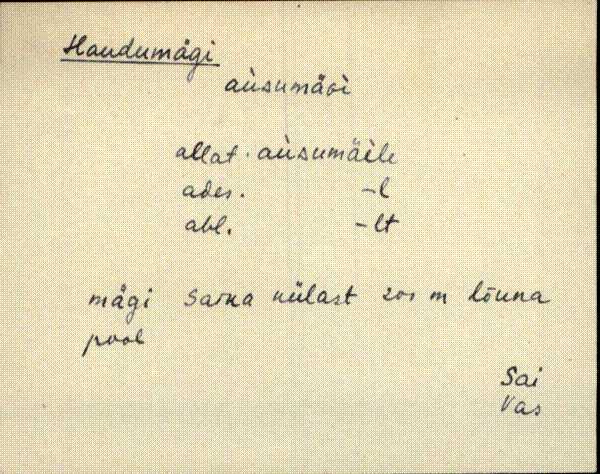 Haudumägi
aùsumäɢì
allat. aùsumäèle
ades. -l
abl. -lt
mägi külast 200 m lõuna
pool
Sai
Vas